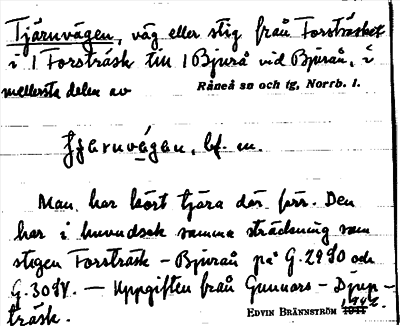 Tjärnvägen, väg eller stig från Forsträsket
i 1 Forsträsk till 1 Bjurå vid Bjurån, i
mellersta delen av Råneå sn och tg, Norrb. l.
bf. m.
Man har kört tjära där förr. Den
har i huvudsak samma sträckning som
stigen Forsträsk - Bjurån på G. 2980 och
G. 3084. — Uppgiften från Gunnars - Djup-
träsk.
EDVIN BRÄNNSTRÖM 1942.